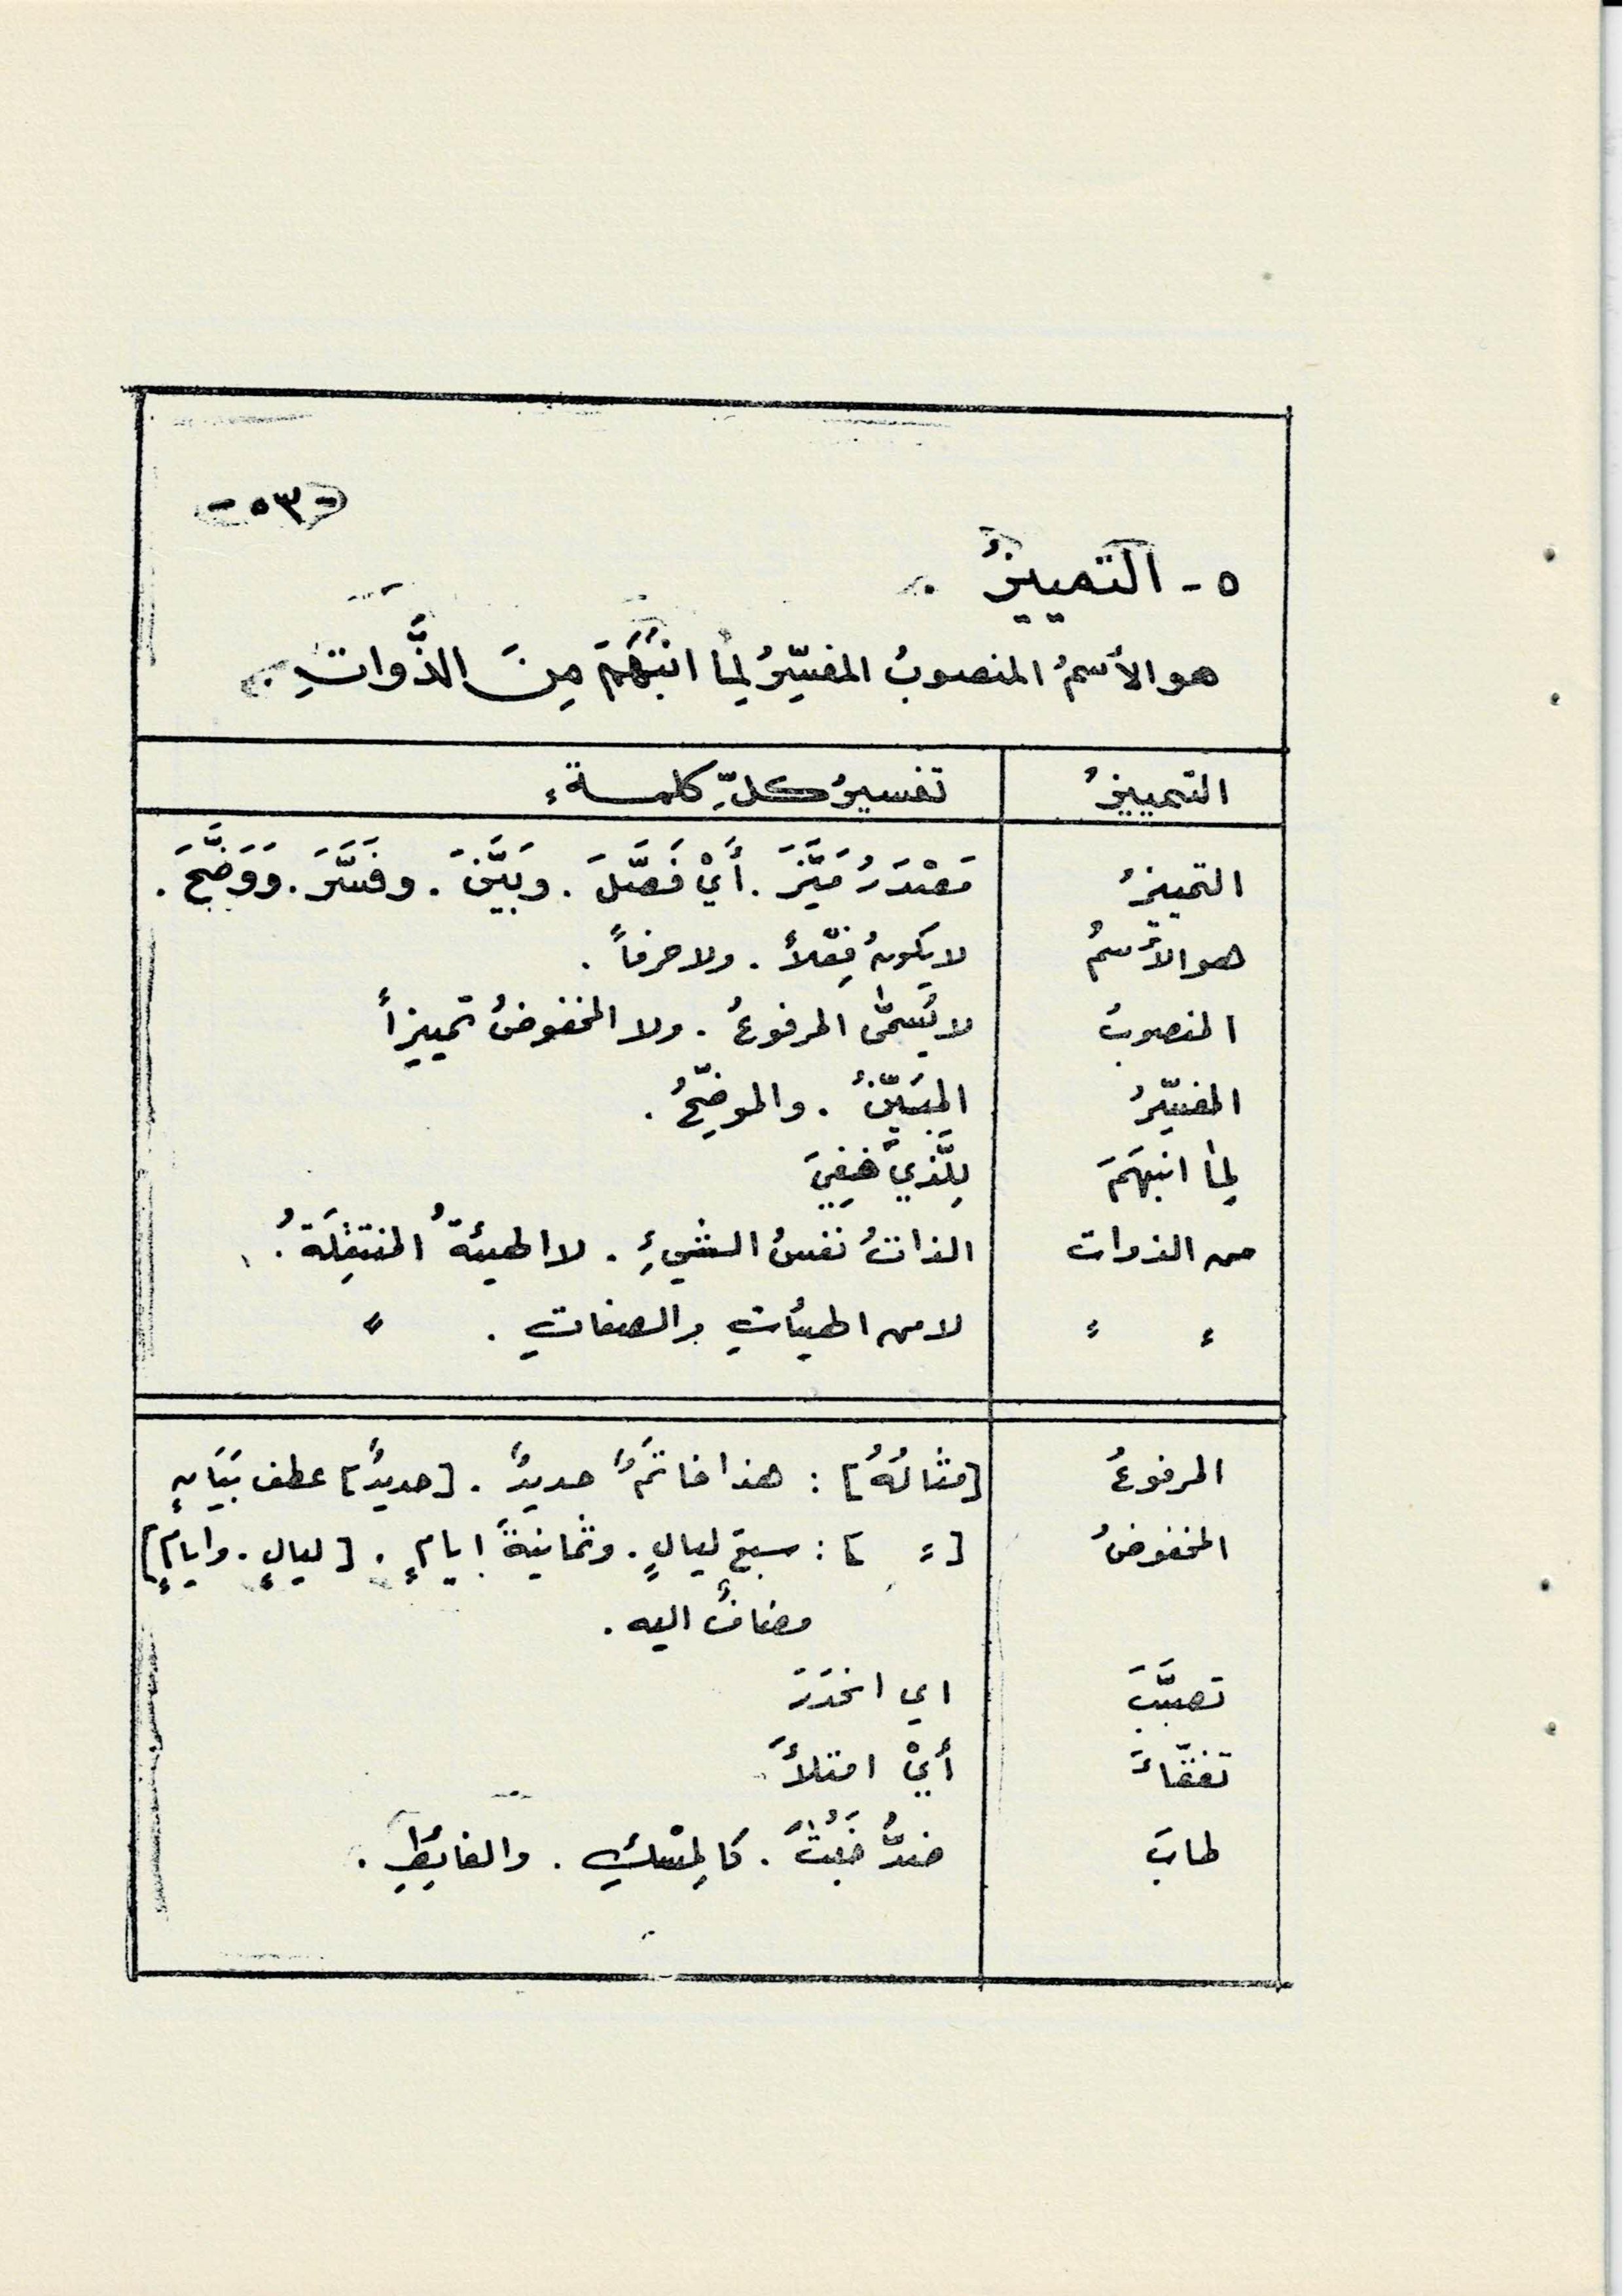 -٥٣-
٥- التمييزُ .
هو الأسمُ المنصوبُ المفسِّرُ لِمٰا انبَهَمَ مِنَ الذَّواتِ .
التمييزُ تفسيرُ كلِّ كلمة ،
التمييزُ مَصْدَرُ مَيَّزَ . أَيْ فَصَّلَ . وبَيَّنَ . وفَسَّرَ . وَوَضَّحَ .
هو الأسمُ لا يكونُ فِعْلاً . ولا حرفاً .
المنصوبُ لا يُسمّٰى المرفوعُ . ولا المخفوضُ تمييزاً
المفسِّرُ المبَيِّنُ . والموضِّحُ .
لِمٰا انبهَمَ لِلَّذي خَفِيَ
من الذوات الذاتُ نفسُ الشيءِ . لا الهيئةُ المنتقِلَةُ .
؛ ؛ لا من الهيأتِ والصفاتِ . ؛
المرفوعُ [مثالُهُ] : هذا خاتمٌ حديدٌ . [حديدٌ] عطف بَيَانٍ
المخفوضُ [؛ ] : سبعَ ليالٍ . وثمانيةَ ايامٍ . [ليالٍ . وايامٍ]
مضافٌ اليه .
تصبَّبَ اي انحَدَرَ
تفقّاءَ أيْ امتلأَ
طابَ ضدُّ خَبُثَ . كالمِسْكِ . والغائِطِ .